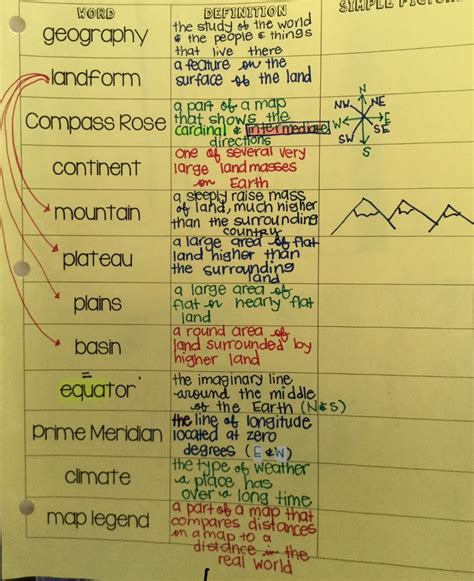 WORD DEFINITION SIMPLE
geography
the study of the world
& the people & things
that live there
landform
a feature on the
surface of the land
Compass Rose
a part of a map
that shows the
cardinal & intermediate
directions
N
NW NE
W E
SW SE
S
continent
one of several very
large landmasses
on Earth
mountain
a steeply raise mass
of land, much higher
than the surrounding
country
plateau
a large area of flat
land higher than
the surrounding
land
plains
a large area of
flat or nearly flat
land
basin
a round area of
land surrounded by
higher land
equator
the imaginary line
around the middle
of the Earth (N&S)
prime Meridian
the line of longitude
located at zero
degrees (E &W)
climate
the type of weather
a place has
over a long time
map legend
a part of a map that
compares distances
in a map to a
distance in the
real world